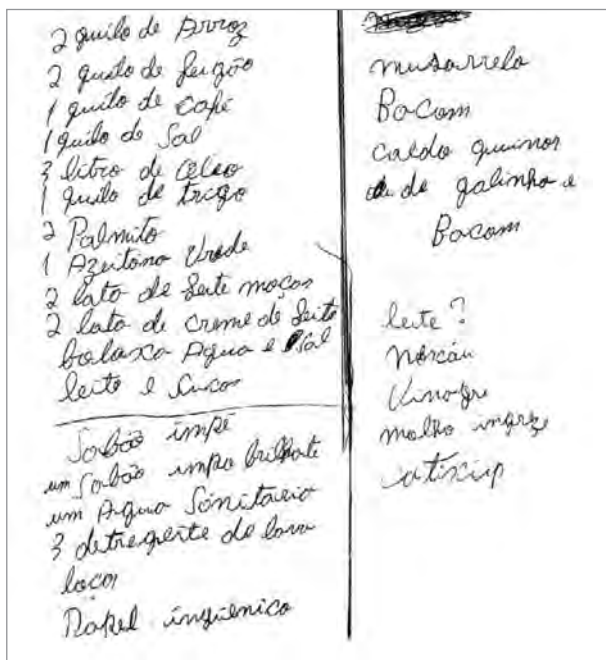 2 quilo de Arroz
2 quilo de feigão
1 quilo de Café
1 quilo de Sal
3 litro de Oleo
1 quilo de trigo
2 Palmito
1 Azeitona Verde
2 lata de leite moças
2 lata de creme de leite
bolaxa Agua e Sal
leite e Sucos
Sabão impé
um Sabão impo brilhate
um Agua Sanitaria
3 detregente de lava
loças
Papel ingienico
musarrela
Bacom
caldo quinor
de galinha e
Bacom
leite?
Vinagre
molho ingreze
catixup